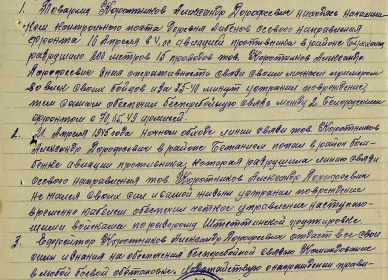 1. Товарищ Коротников Александр Дорофеевич находясь начальни-
ком контрольного поста деревня осевого направления
фронта 10 Апреля в 4.00 авиацией противника в районе
разрушило 200 метров 15 проводов тов. Коротников Александр
Дорофеевич дал оперативности связи своим личным примером
своих бойцов на 35-40 минут устранил повреждение,
тем самым обеспечил бесперебойную связь между 2 Белорусским
фронтом с 70, 65, 49 армией.
2. 11 Апреля 1945 года ночном обходе линии связи тов. Коротников
Александр Дорофеевич в районе попал в район бом-
бежке авиации противника, которая разрушила линию связи
осевого направления тов. Коротников Александр Дорофеевич
Не жалея своих сил и самой жизни устранил повреждение
временно обеспечил четкое управление наступаю-
щими войсками по разгрому Штеттинской группировке
3. Коротников Александр Дорофеевич отдает все свои
силы и знания на обеспечения бесперебойной связью Командование
в любой боевой обстановке. Ходатайствую о награждении прави-